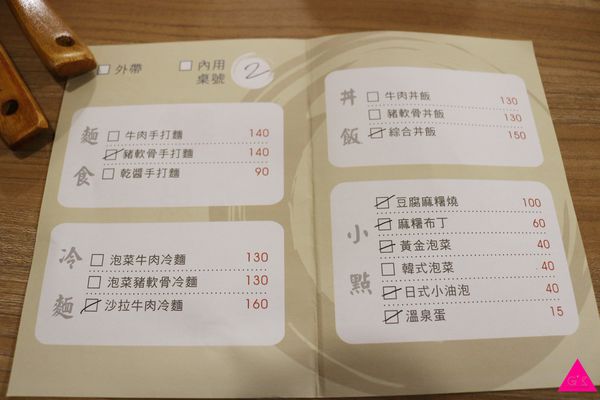 外帶
內用
桌號 2
麵食
牛肉手打麵 140
豬軟骨手打麵 140
乾醬手打麵 90
冷麵
泡菜牛肉冷麵 130
泡菜豬軟骨冷麵 130
沙拉牛肉冷麵 160
丼飯
牛肉丼飯 130
豬軟骨丼飯 130
綜合丼飯 150
小點
豆腐麻糬燒 100
麻糬布丁 60
黃金泡菜 40
韓式泡菜 40
日式小油泡 40
溫泉蛋 15
G'K